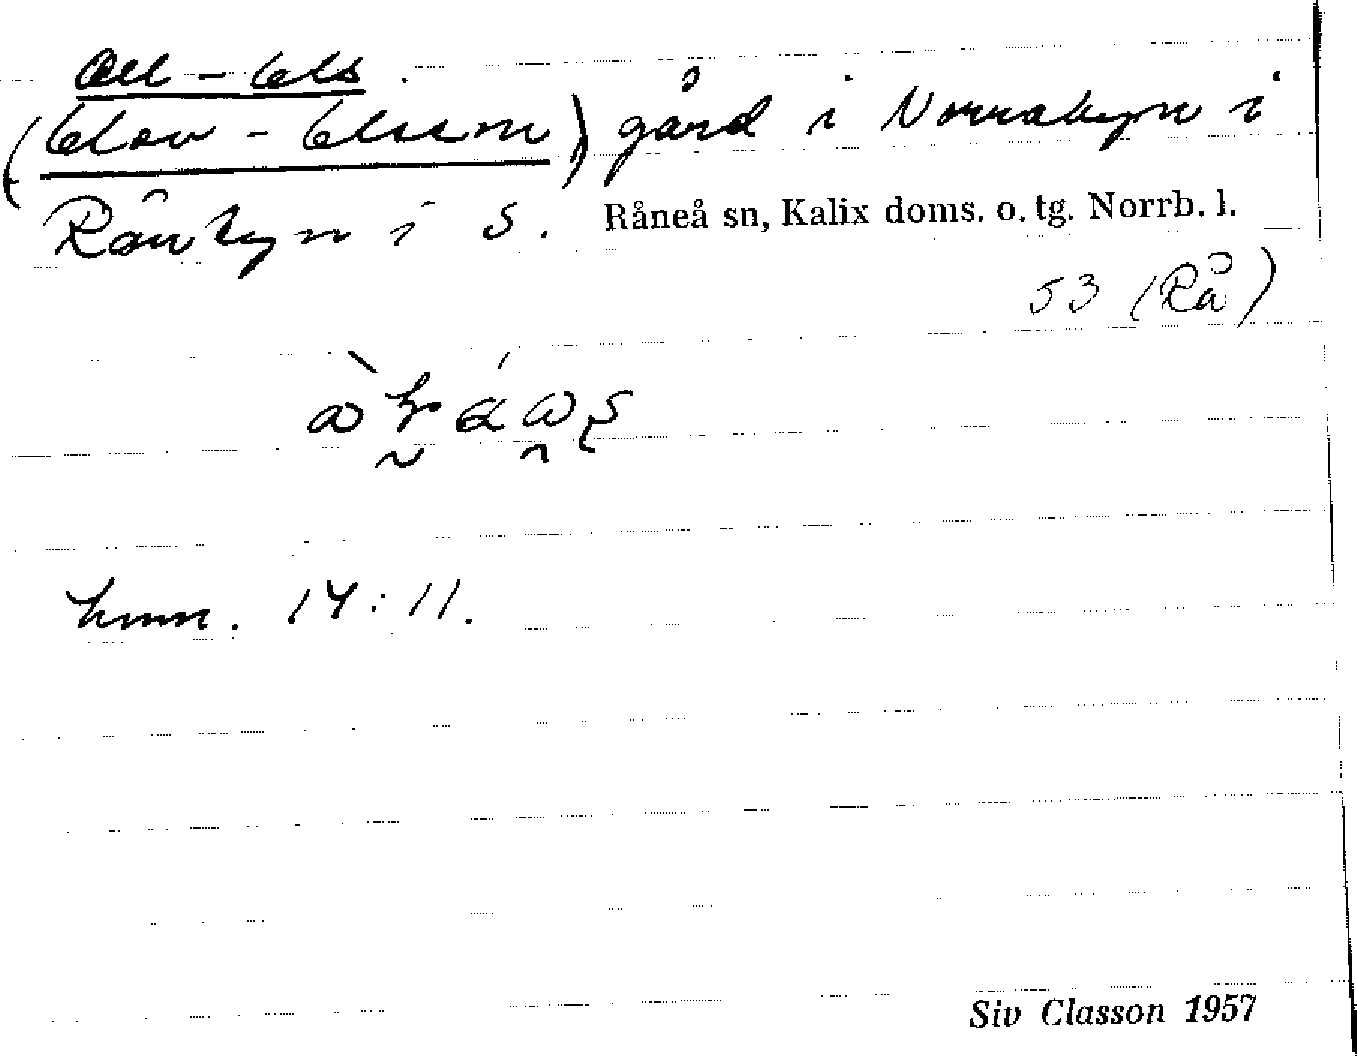 Oll-Ols.
(Olov-Olsson) gård i Norrabyn i
Rånbyn i s. Råneå sn, Kalix doms. o. tg. Norrb. l.
53 (Rå)
hmn. 14:11.
Siv Classon 1957